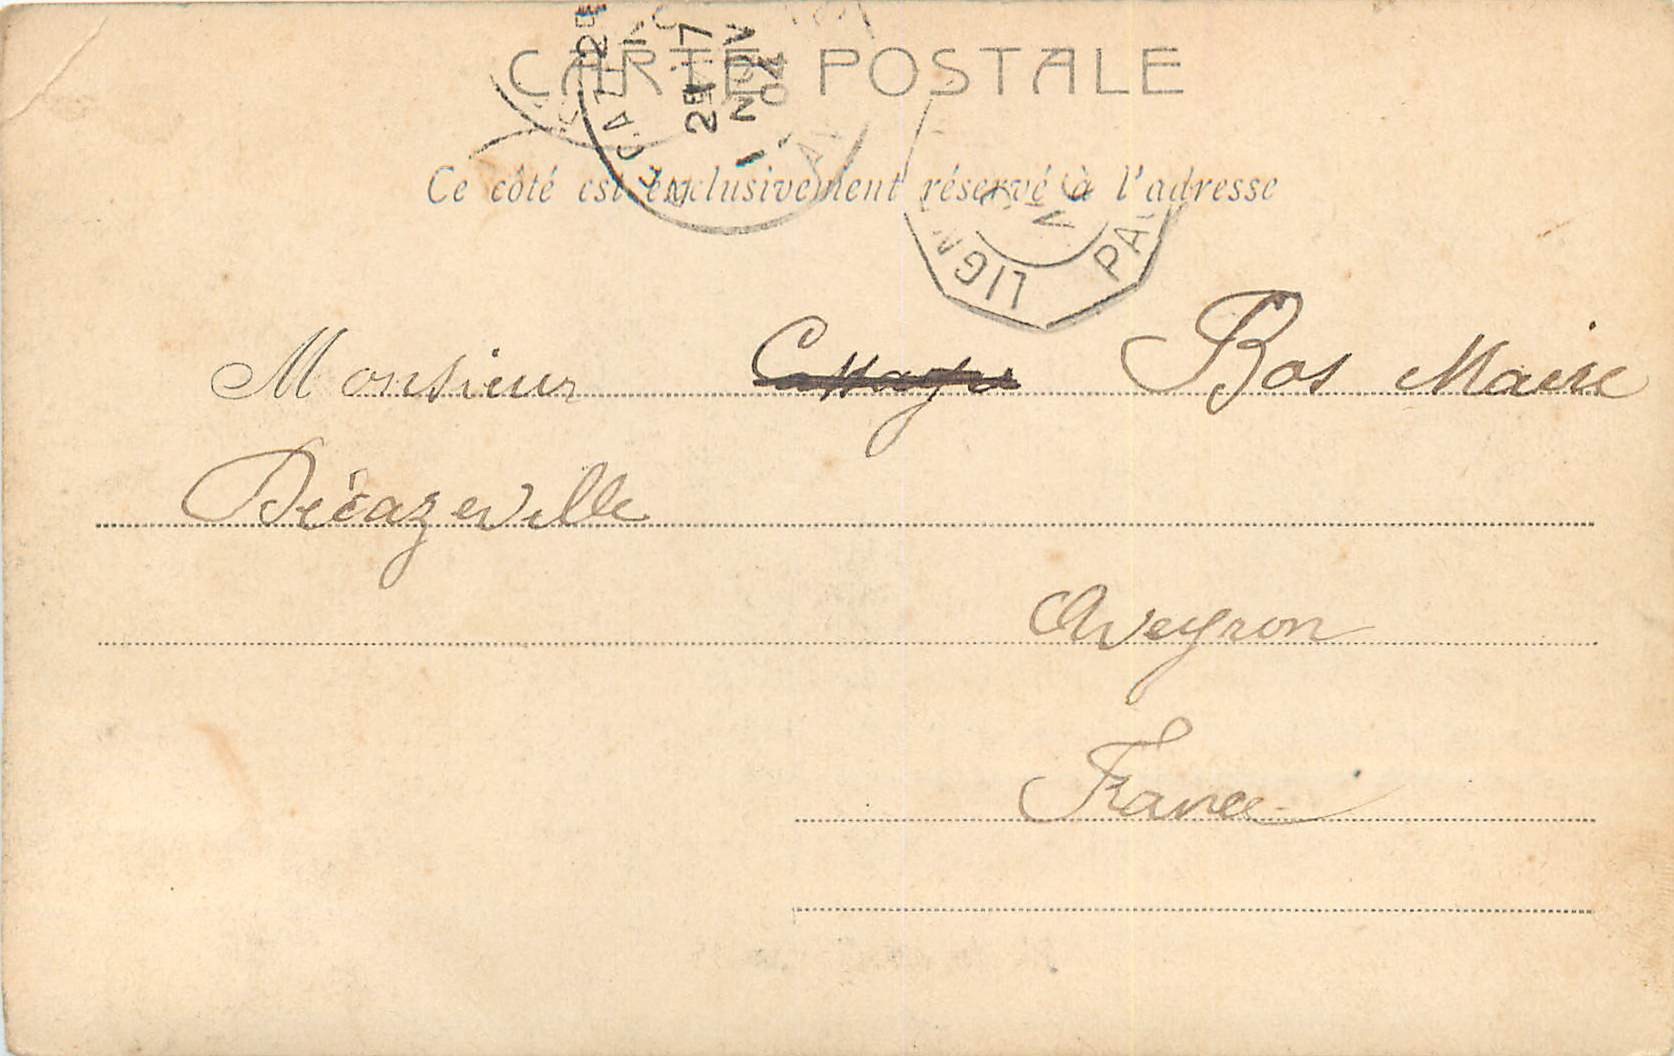 CARTE POSTALE
Ce côté est exclusivement réservé à l'adresse
25 7
NOV
04
LIGN
PA
Monsieur Bos Maire
Décazeville
Aveyron
France